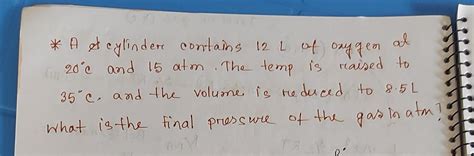 * A cylinder contains 12 L of oxygen at
20°c and 15 atm. The temp is raised to
35°c. and the volume is reduced to 8.5L
what is the final pressure of the gas in atm?